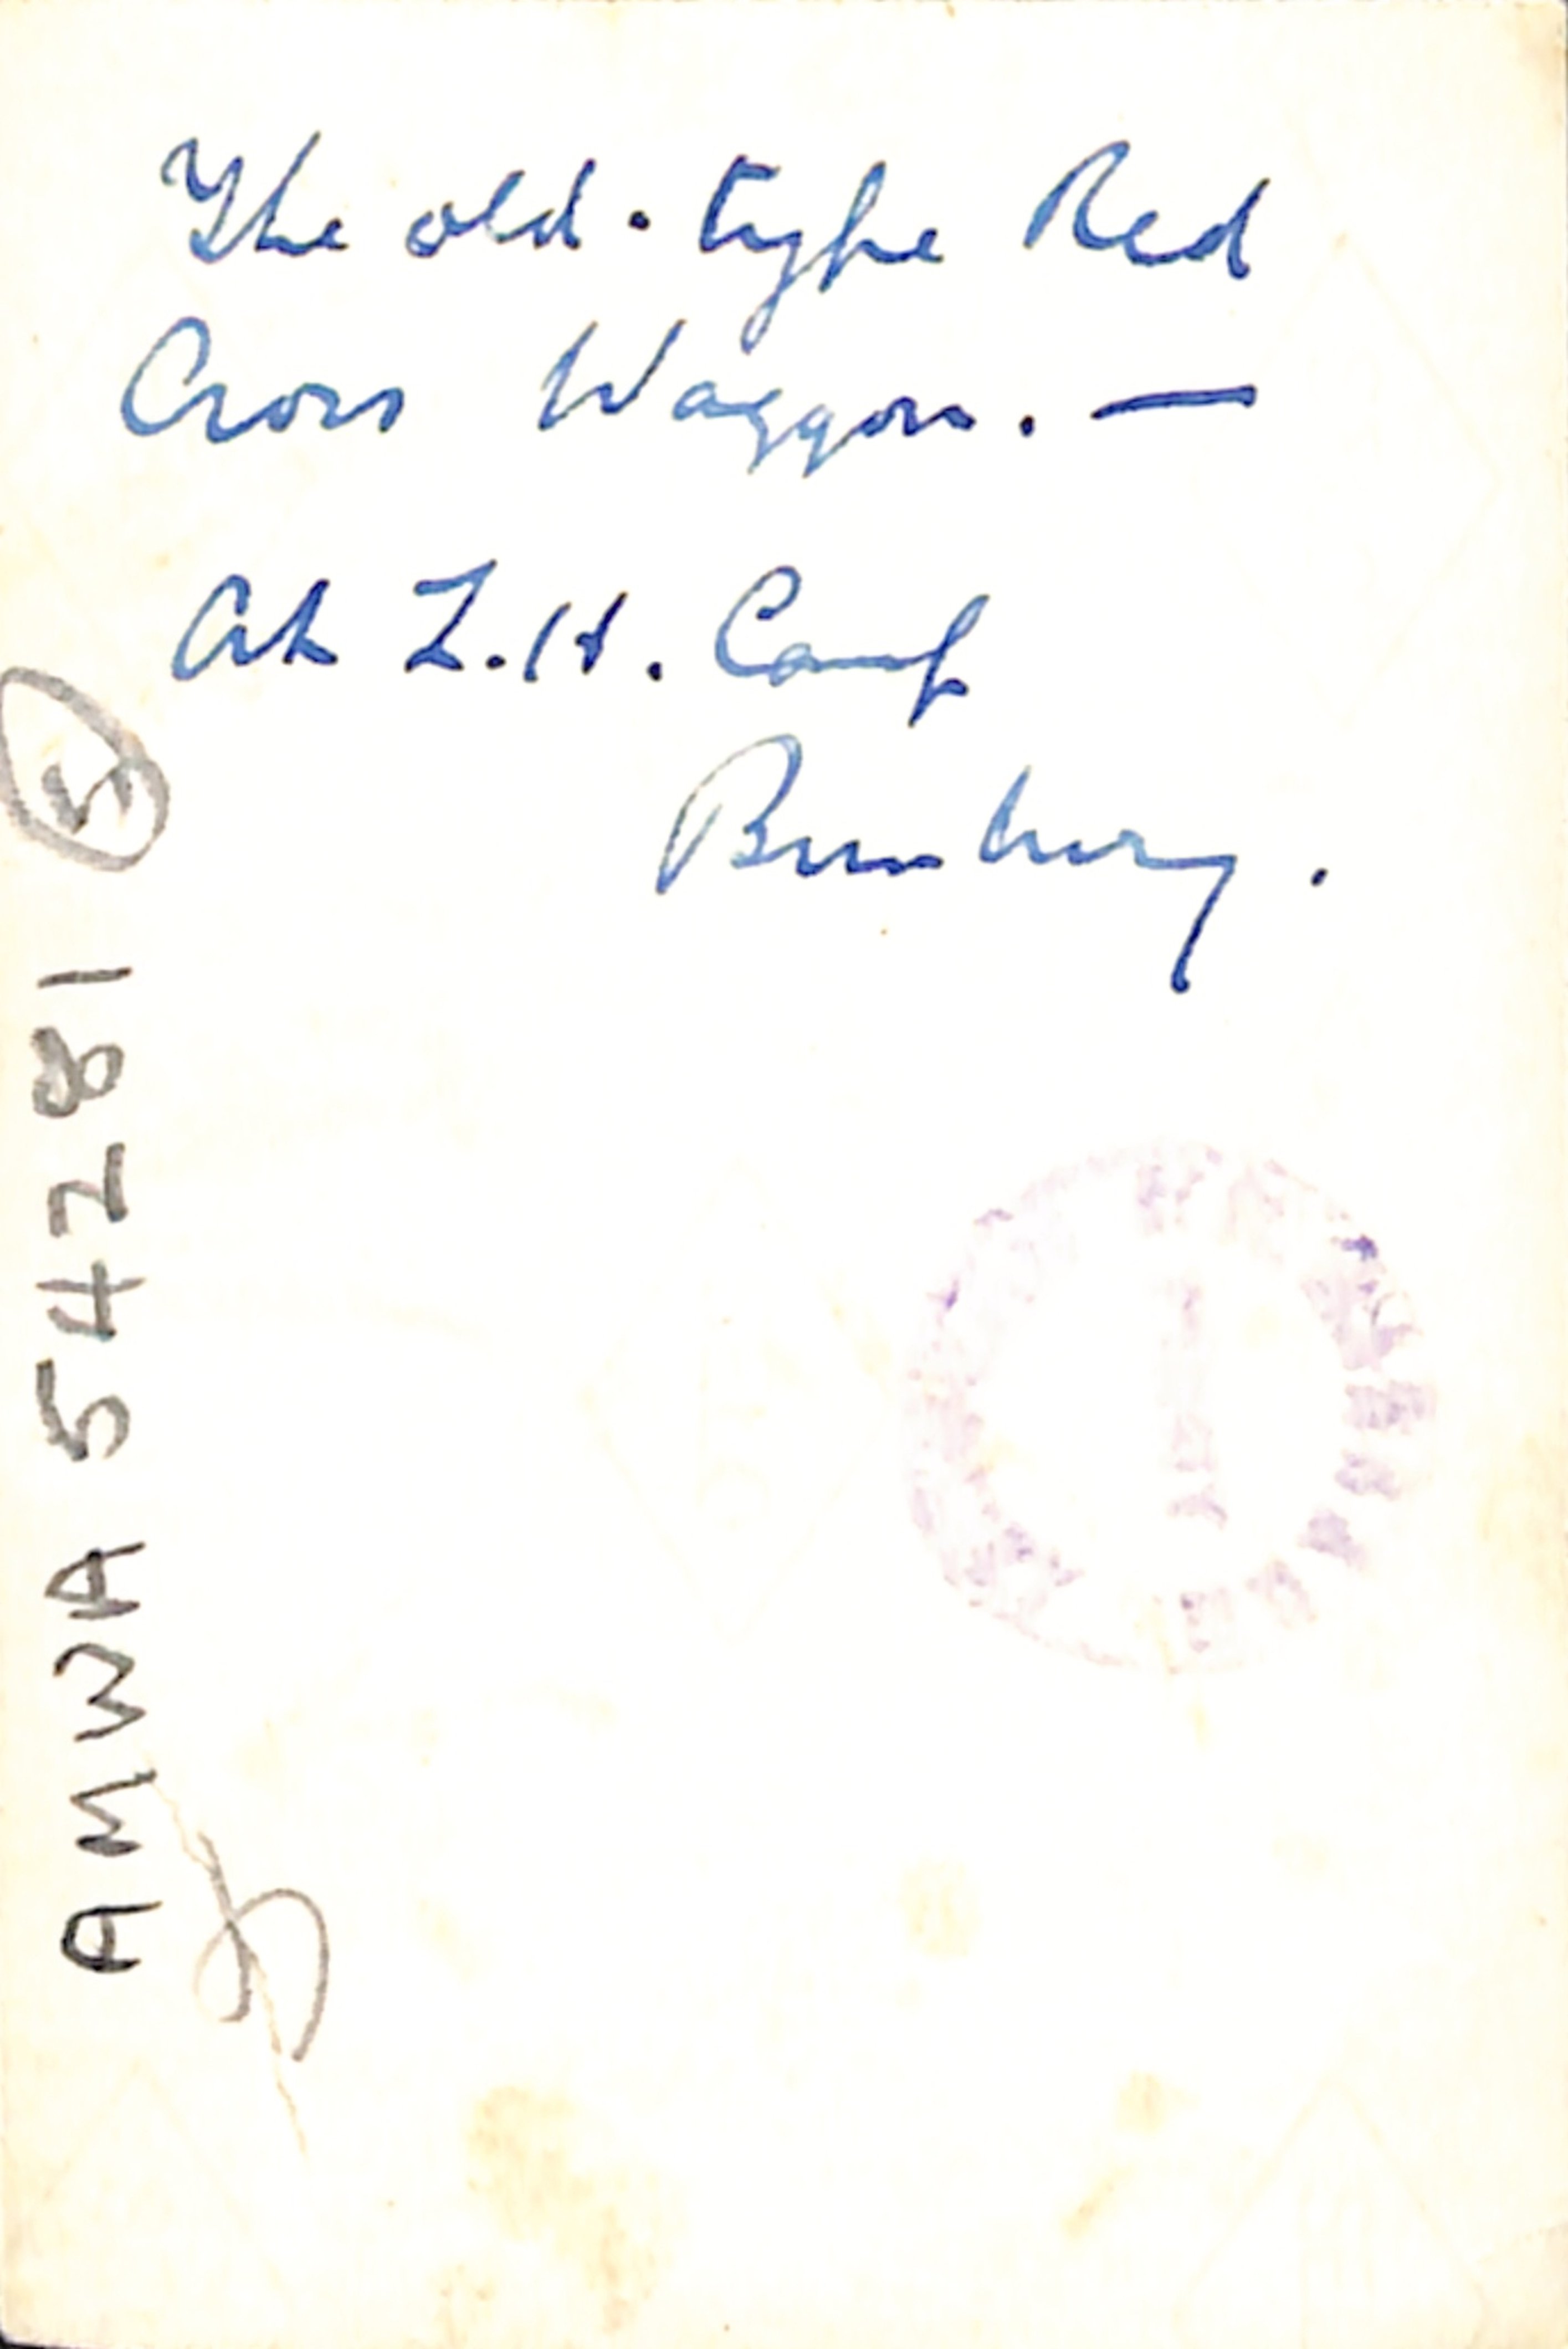 The old-type Red
Cross Waggon. —
At L.H. Camp
Bunbury.
AMWA 54281